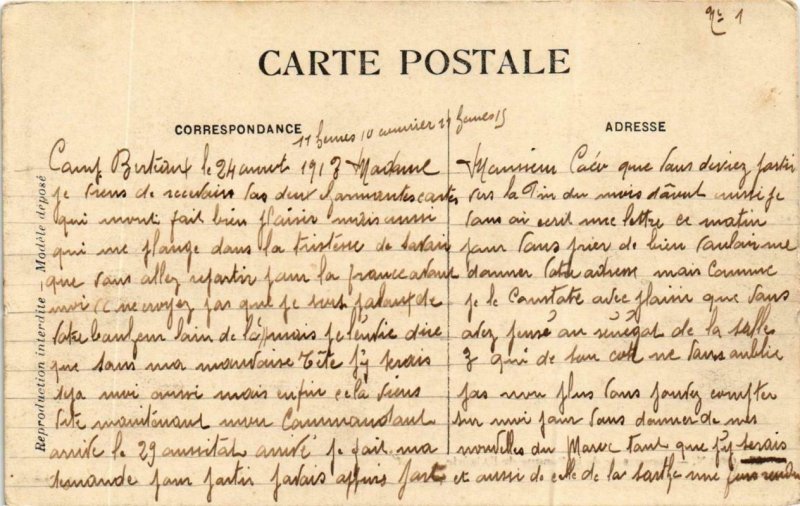 1
CARTE POSTALE
CORRESPONDANCE
ADRESSE
Camp Berteaux le 24 aout 1913 Madame
je viens de recevoir vos deux charmantes cartes
qui mont fait bien plaisir mais aussi
qui me plonge dans la tristesse de savoir
que vous allez repartir pour la france avant
moi ne croyez pas que je suis jaloux de
votre bonheur loin de là mais je
que sans ma mauvaise Tête j'y serais
deja moi aussi mais enfin cela viens
vite maintenant mon Commandant
arrive le 29 aussitot arrivé je fait ma
demande pour partir javais appris par
Monsieur que vous deviez partir
vers la Fin du mois aussi je
vous ai ecrit une lettre ce matin
pour vous prier de bien vouloir me
donner votre adresse mais comme
je le Constate avec plaisir que vous
avez pensé au sénégal de la
3 qui de son coté ne vous oublie
pas non plus vous pouvez compter
sur moi pour vous donner de mes
nouvelles du Maroc tant que j'y serais
et aussi de celle de la sarthe une fois rendu
Reproduction interdite - Modèle déposé